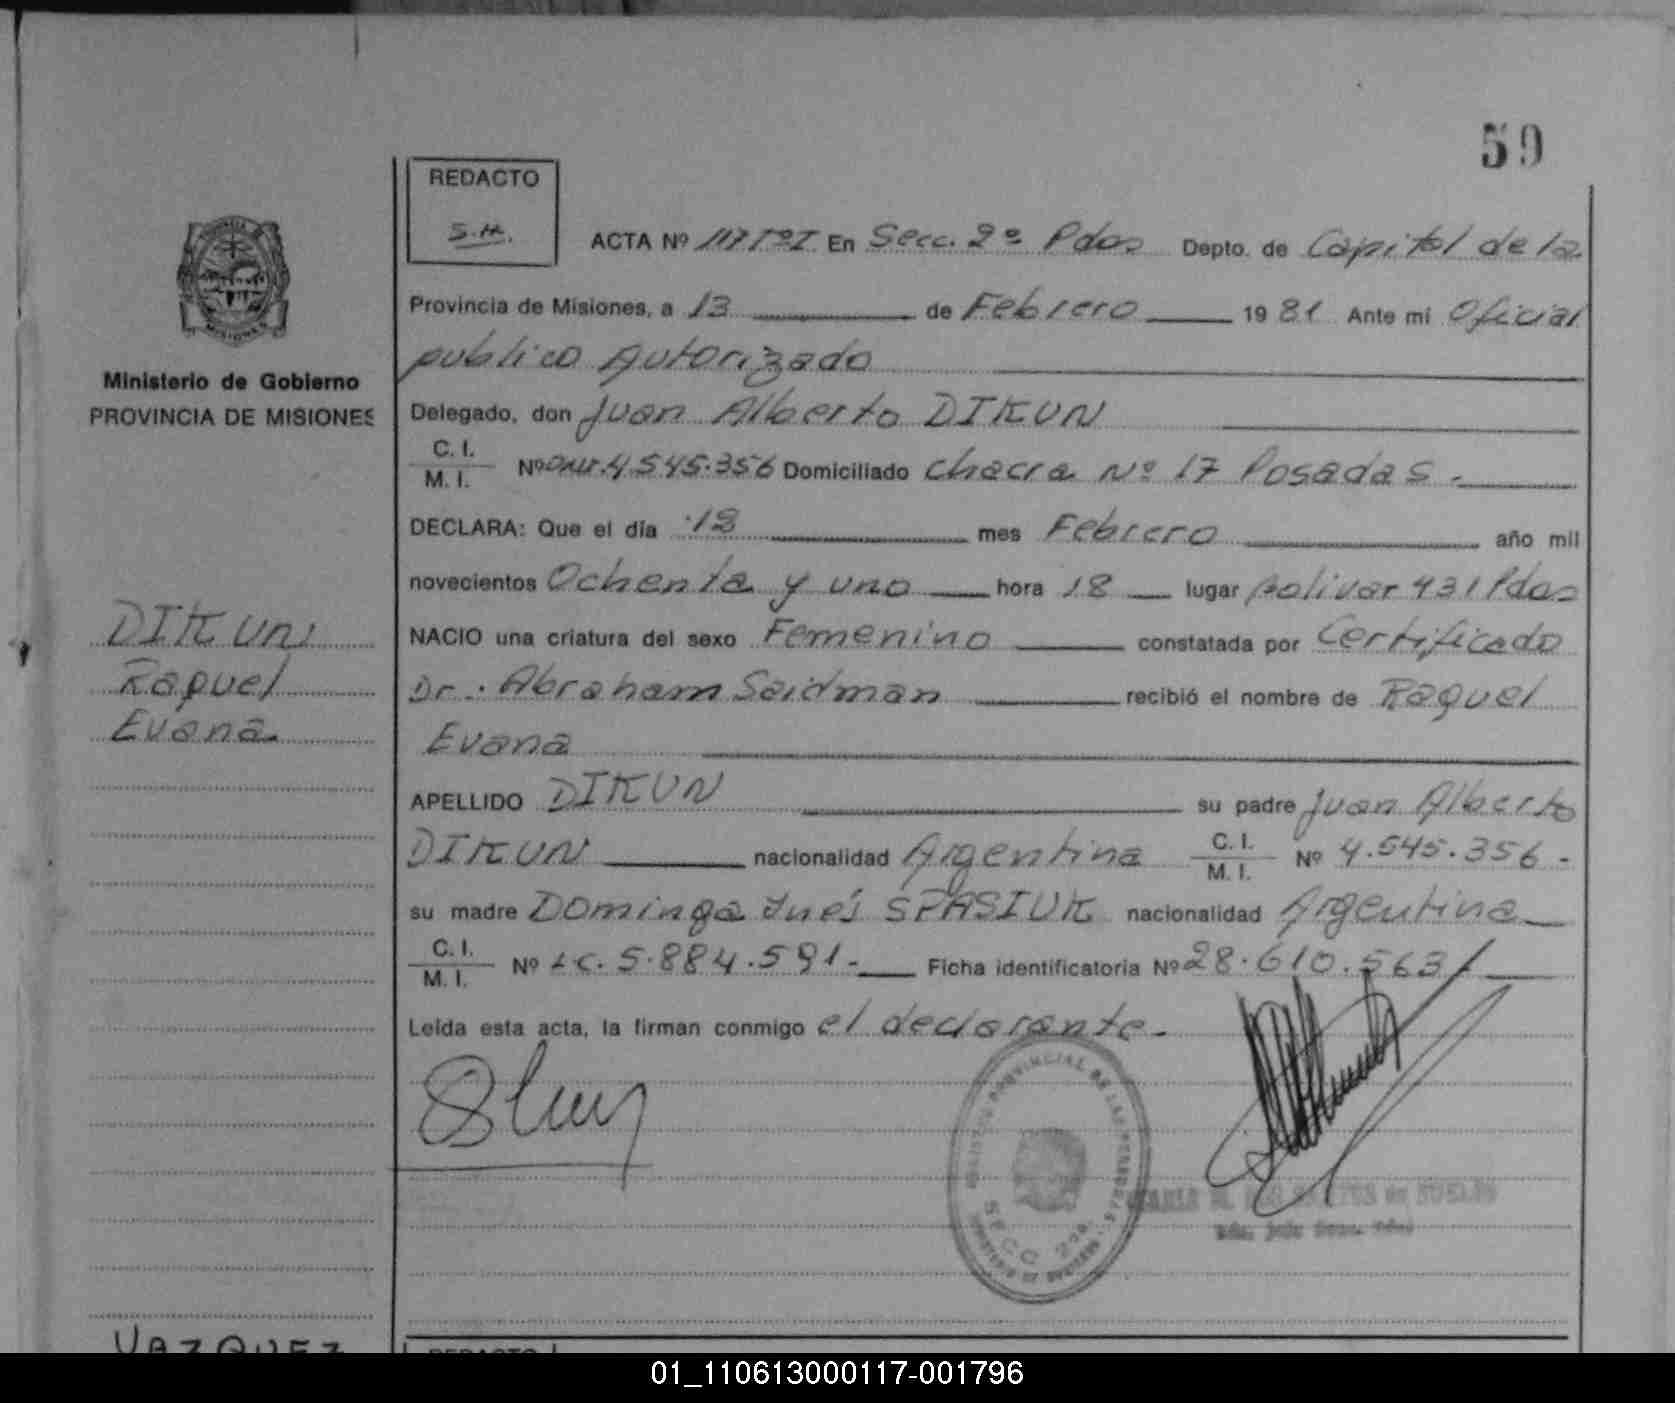 59
REDACTO
S.H.
ACTA Nº 117 TºI En Secc. 2º Pdas Depto. de Capital de la
Provincia de Misiones, a 13 de Febrero 1981 Ante mi Oficial
publico Autorizado
Ministerio de Gobierno
PROVINCIA DE MISIONES
Delegado, don Juan Alberto DIKUN
C. I.
M. I. Nº DNI. 4.545.356 Domiciliado Chacra Nº 17 Posadas.-
DECLARA: Que el día 12 mes Febrero año mil
novecientos Ochenta y uno hora 18 lugar bolivar 431 Pdas
DIKUN
Raquel
Evana
NACIO una criatura del sexo Femenino constatada por Certificado
Dr. Abraham Seidman recibió el nombre de Raquel
Evana
APELLIDO DIKUN su padre Juan Alberto
DIKUN nacionalidad Argentina C. I. M. I. Nº 4.545.356.-
su madre Dominga Inés SPASIUK nacionalidad Argentina
C. I.
M. I. Nº LC. 5.884.591.- Ficha identificatoria Nº 28.610.563/
Leída esta acta, la firman conmigo el declarante.-
SECC 2da.
VAZQUEZ
REDACTO
01_110613000117-001796